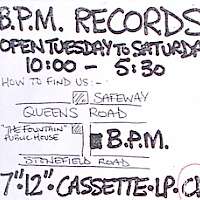 B.P.M. RECORDS
OPEN TUESDAY TO SATURDA
10:00 - 5:30
HOW TO FIND US:-
SAFEWAY
QUEENS ROAD
"THE FOUNTAIN"
PUBLIC HOUSE
B.P.M.
STONEFIELD ROAD
7"·12"·CASSETTE·LP·C